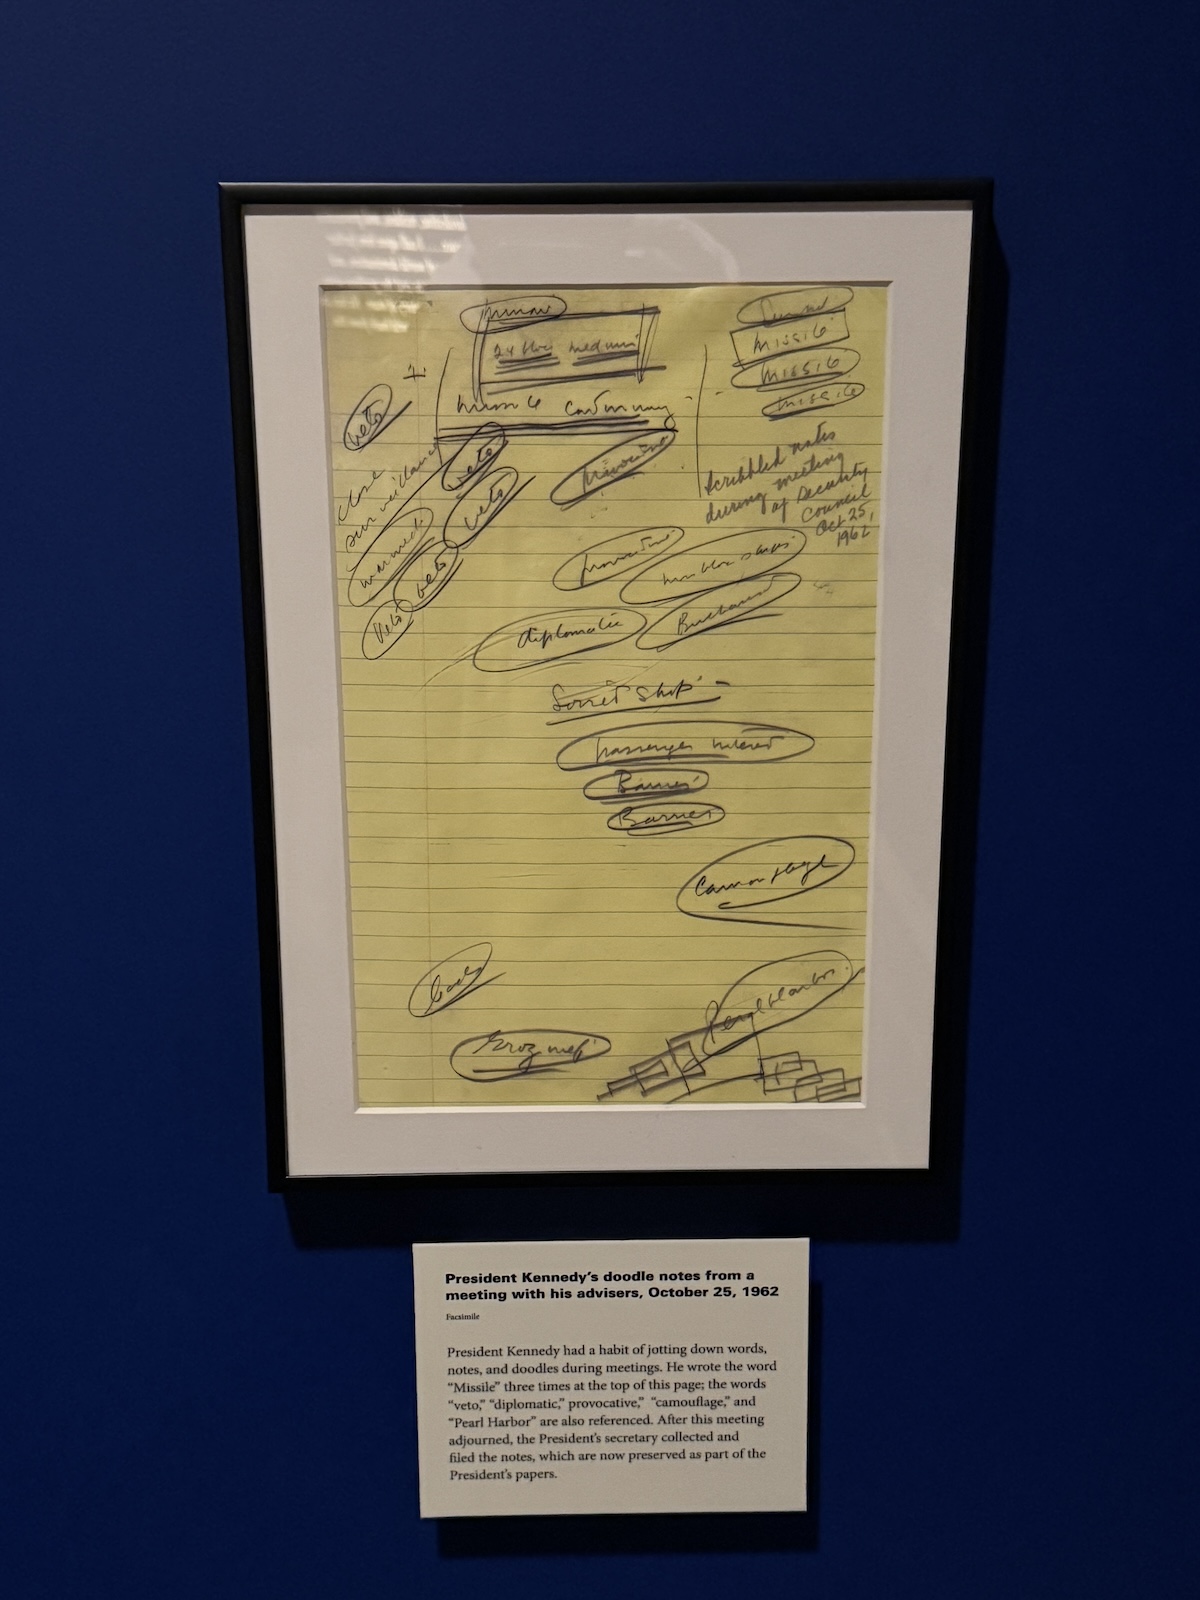 Missile
Missile
Missile
24 hour medium
missile continuing
veto
veto
veto
veto
veto
close
surveillance
provocative
provocative
scribbled notes
during meeting
of Security
Council
Oct 25,
1962
diplomatic
Soviet Ship
passenger
Camouflage
Pearl Harbor
President Kennedy's doodle notes from a
meeting with his advisers, October 25, 1962
Facsimile
President Kennedy had a habit of jotting down words,
notes, and doodles during meetings. He wrote the word
“Missile” three times at the top of this page; the words
“veto,” “diplomatic,” provocative,” “camouflage,” and
“Pearl Harbor” are also referenced. After this meeting
adjourned, the President's secretary collected and
filed the notes, which are now preserved as part of the
President's papers.